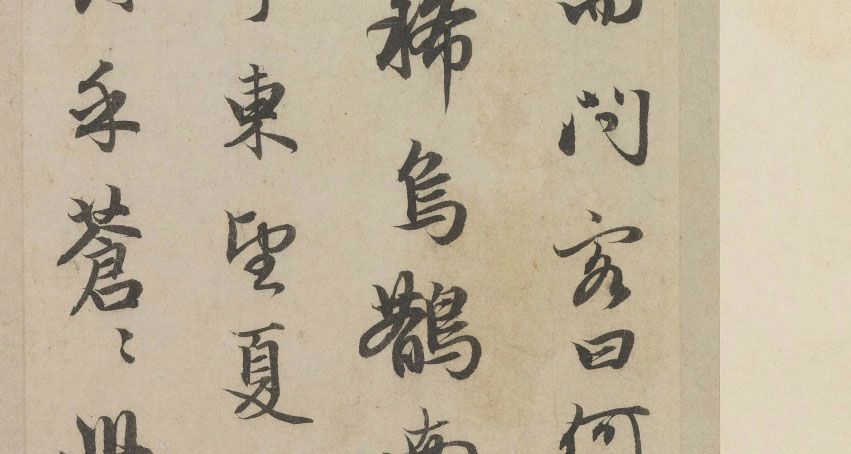 而問客曰何
稀烏鵲南
東望夏
乎蒼〻